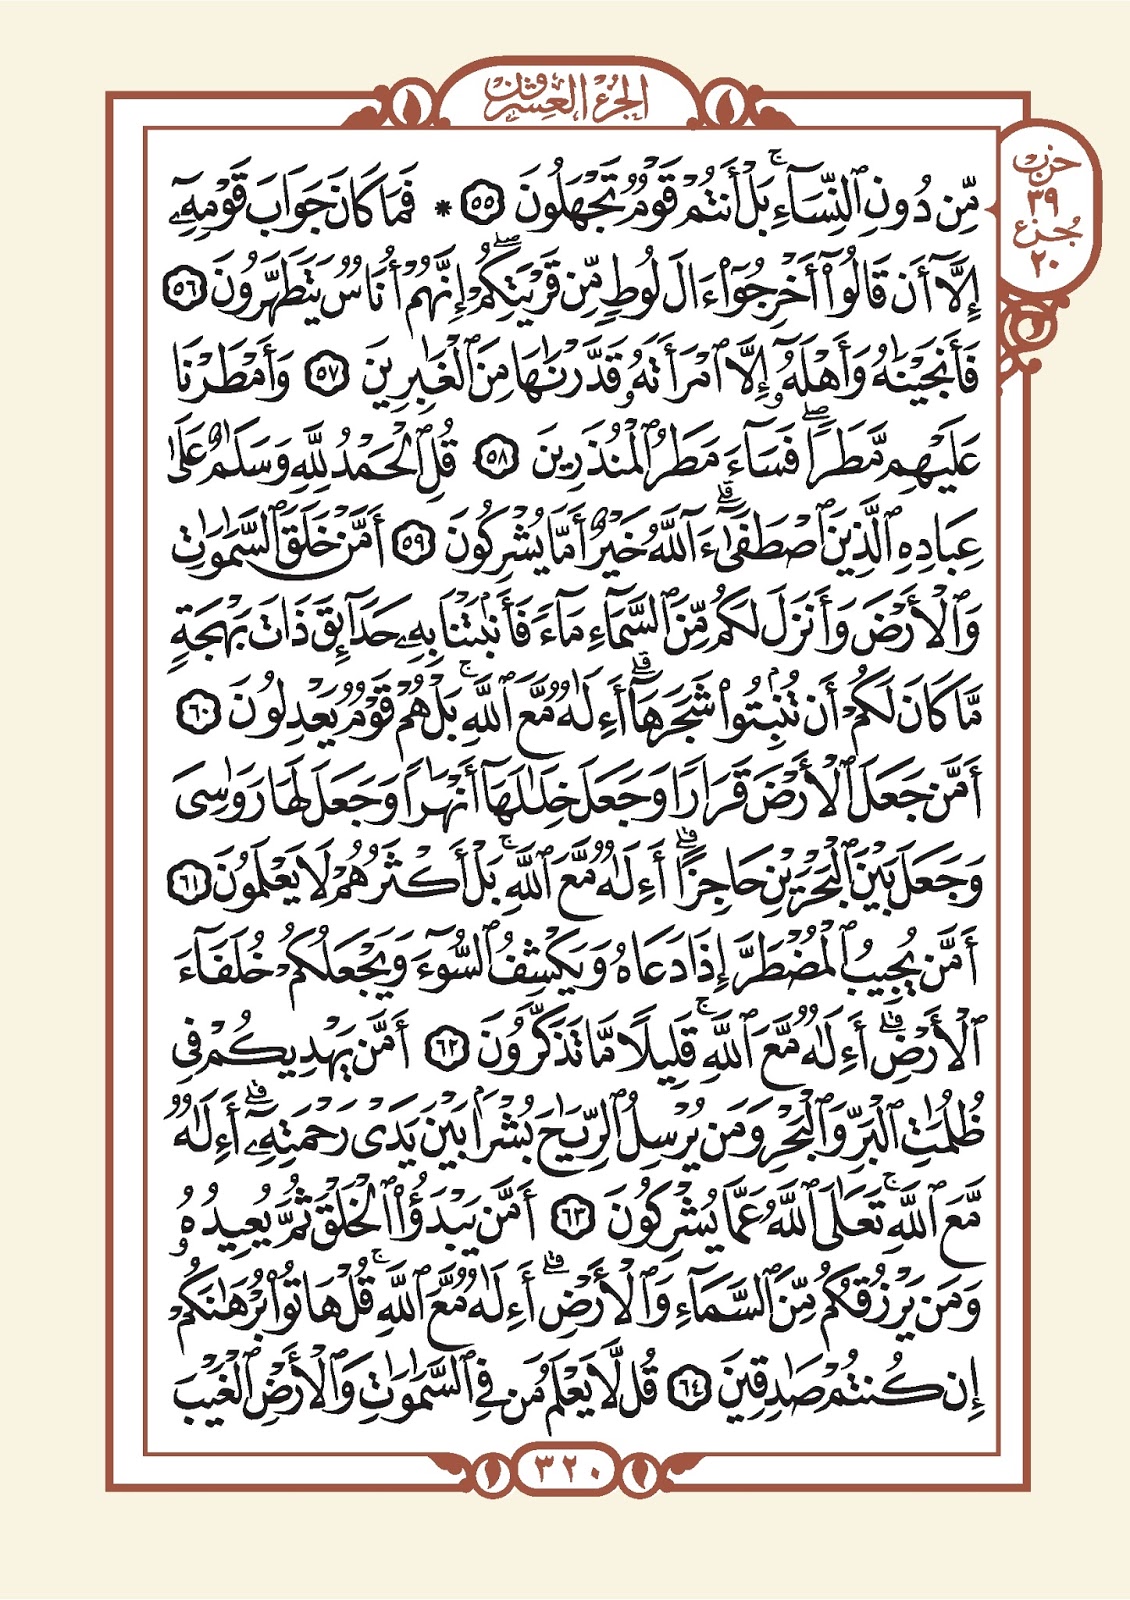 الجزء العشرون
حزب
٣٩
جزء
٢٠
مِّن دُونِ ٱلنِّسَآءِۚ بَلْ أَنتُمْ قَوْمٌ تَجْهَلُونَ ٥٥ * فَمَا كَانَ جَوَابَ قَوْمِهِۦٓ
إِلَّآ أَن قَالُوٓا۟ أَخْرِجُوٓا۟ ءَالَ لُوطٍ مِّن قَرْيَتِكُمْۖ إِنَّهُمْ أُنَاسٌ يَتَطَهَّرُونَ ٥٦
فَأَنجَيْنَٰهُ وَأَهْلَهُۥٓ إِلَّا ٱمْرَأَتَهُۥ قَدَّرْنَٰهَا مِنَ ٱلْغَٰبِرِينَ ٥٧ وَأَمْطَرْنَا
عَلَيْهِم مَّطَرًاۖ فَسَآءَ مَطَرُ ٱلْمُنذَرِينَ ٥٨ قُلِ ٱلْحَمْدُ لِلَّهِ وَسَلَٰمٌ عَلَىٰ
عِبَادِهِ ٱلَّذِينَ ٱصْطَفَىٰٓۗ ءَآللَّهُ خَيْرٌ أَمَّا يُشْرِكُونَ ٥٩ أَمَّنْ خَلَقَ ٱلسَّمَٰوَٰتِ
وَٱلْأَرْضَ وَأَنزَلَ لَكُم مِّنَ ٱلسَّمَآءِ مَآءً فَأَنۢبَتْنَا بِهِۦ حَدَآئِقَ ذَاتَ بَهْجَةٍ
مَّا كَانَ لَكُمْ أَن تُنۢبِتُوا۟ شَجَرَهَآۗ أَءِلَٰهٌ مَّعَ ٱللَّهِۚ بَلْ هُمْ قَوْمٌ يَعْدِلُونَ ٦٠
أَمَّن جَعَلَ ٱلْأَرْضَ قَرَارًا وَجَعَلَ خِلَٰلَهَآ أَنْهَٰرًا وَجَعَلَ لَهَا رَوَٰسِىَ
وَجَعَلَ بَيْنَ ٱلْبَحْرَيْنِ حَاجِزًاۗ أَءِلَٰهٌ مَّعَ ٱللَّهِۚ بَلْ أَكْثَرُهُمْ لَا يَعْلَمُونَ ٦١
أَمَّن يُجِيبُ ٱلْمُضْطَرَّ إِذَا دَعَاهُ وَيَكْشِفُ ٱلسُّوٓءَ وَيَجْعَلُكُمْ خُلَفَآءَ
ٱلْأَرْضِۗ أَءِلَٰهٌ مَّعَ ٱللَّهِۚ قَلِيلًا مَّا تَذَكَّرُونَ ٦٢ أَمَّن يَهْدِيكُمْ فِى
ظُلُمَٰتِ ٱلْبَرِّ وَٱلْبَحْرِ وَمَن يُرْسِلُ ٱلرِّيَٰحَ بُشْرًۢا بَيْنَ يَدَىْ رَحْمَتِهِۦٓۗ أَءِلَٰهٌ
مَّعَ ٱللَّهِۚ تَعَٰلَى ٱللَّهُ عَمَّا يُشْرِكُونَ ٦٣ أَمَّن يَبْدَؤُا۟ ٱلْخَلْقَ ثُمَّ يُعِيدُهُۥ
وَمَن يَرْزُقُكُم مِّنَ ٱلسَّمَآءِ وَٱلْأَرْضِۗ أَءِلَٰهٌ مَّعَ ٱللَّهِۚ قُلْ هَاتُوا۟ بُرْهَٰنَكُمْ
إِن كُنتُمْ صَٰدِقِينَ ٦٤ قُل لَّا يَعْلَمُ مَن فِى ٱلسَّمَٰوَٰتِ وَٱلْأَرْضِ ٱلْغَيْبَ
٣٢٠